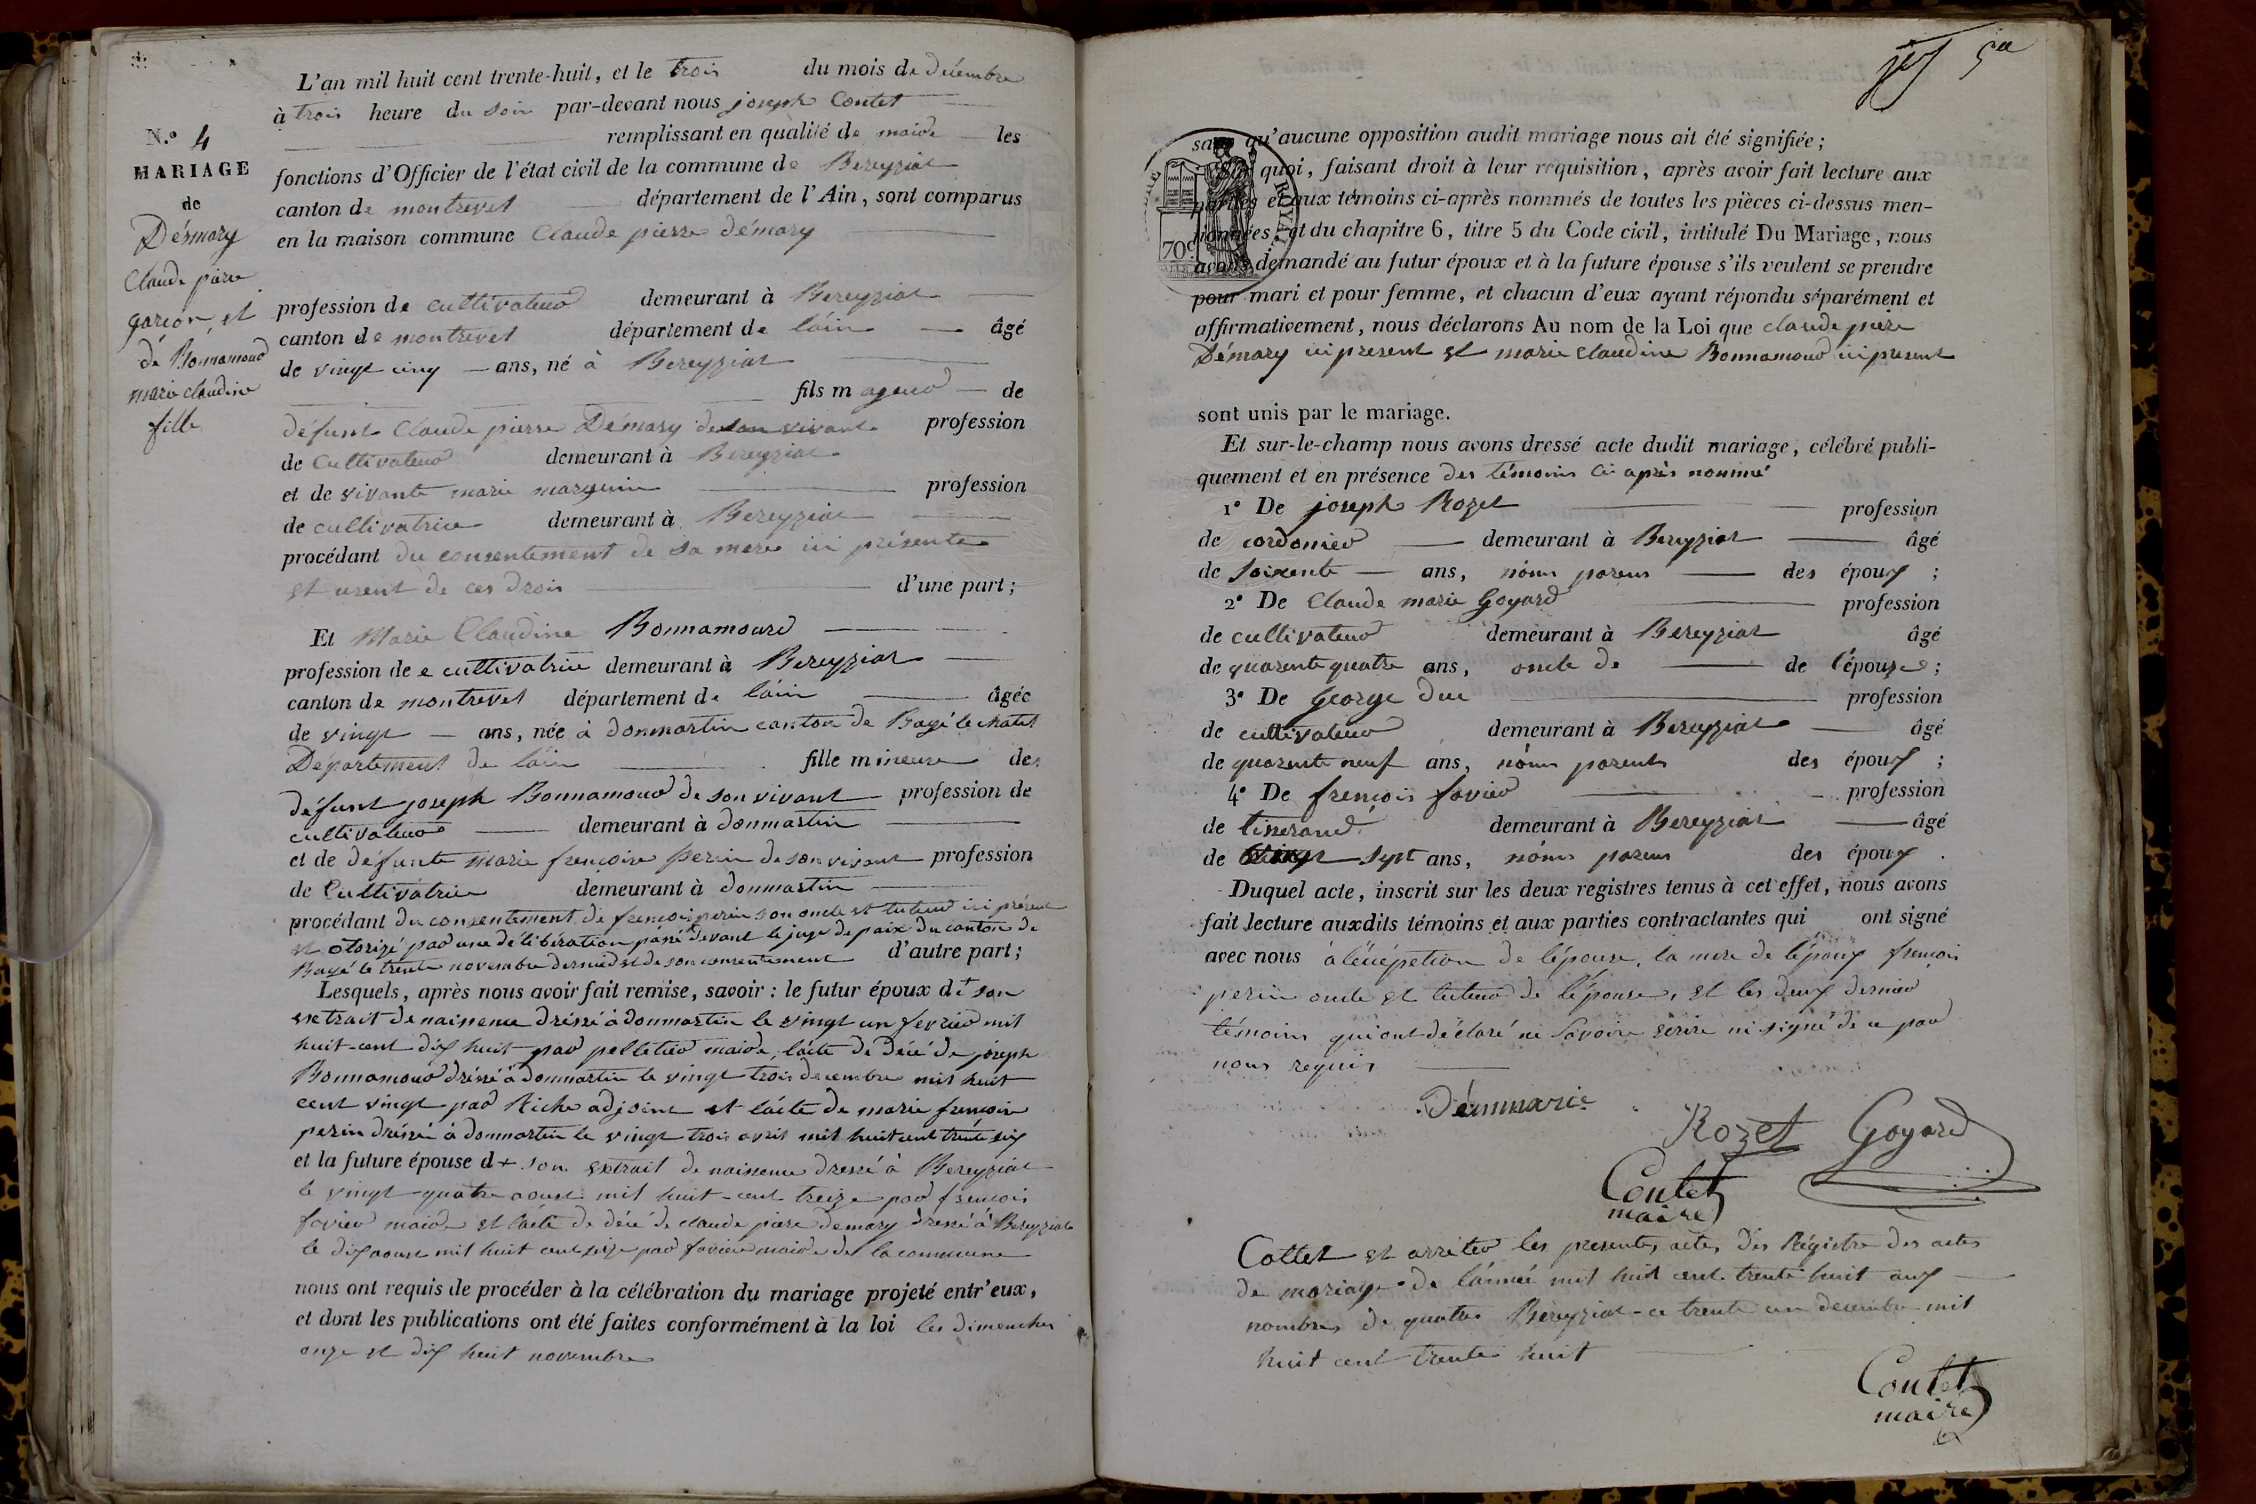 N.º 4
MARIAGE
de
Démary
Claude piere
garcon et
de Bonnamour
marie claudine
fille
L'an mil huit cent trente-huit, et le trois du mois de décembre
à trois heure du soir par-devant nous joseph Contet
remplissant en qualité de maire les
fonctions d'Officier de l'état civil de la commune de Bereyziat
canton de montrevet département de l'Ain, sont comparus
en la maison commune Claude pierre démary
profession de cultivateur demeurant à Bereyziat
canton de montrevet département de láin âgé
de vingt cinq ans, né à Bereyziat
fils mageur de
défunt Claude pierre Démary de son vivant profession
de Cultivateur demeurant à Bereyziat
et de vivante marie marguin profession
de cultivatrice demeurant à Bereyziat
procédant du consentement de sa mere ici présente
et usent de ces drois d'une part;
Et Marie Claudine Bonnamourd
profession de e cultivatrice demeurant à Bereyziat
canton de montrevet département de láin âgée
de vingt ans, née à donmartin canton de Bagé le chatel
Département de láin fille mineure des
défunt joseph Bonnamour de son vivant profession de
cultivateur demeurant à donmartin
et de défunte marie frencoise perin de son vivant profession
de Cultivatrice demeurant à donmartin
procédant du consentement de frencois perin son oncle et tuteur ici présent
et otorizé par une délibération passé devant le juge de paix du canton de
Bagé le trente novembre dernier et de son consentement d'autre part;
Lesquels, après nous avoir fait remise, savoir: le futur époux d+ son
extrait de naissence dréssé à donmartin le vingt un fevrier mil
huit-cent dix huit par pelletier maire, lácte de décé de joseph
Bonnamour dréssé à donmartin le vingt trois decembre mil huit
cent vingt par Riche adjoint et lácte de marie frencoise
perin dréssé à donmartin le vingt trois avril mil huit cent trente six
et la future épouse d+ son extrait de naissence dressé à Bereyziat
le vingt quatre aoust mil huit-cent treize par frencois
favier maire et lácte de décé de claude piere demary dressé à Bereyziat
le dix aoust mil huit cent seize par favier maire de la commune
nous ont requis de procéder à la célébration du mariage projeté entr'eux,
et dont les publications ont été faites conformément à la loi les dimenches
onze et dix huit novembre
70 c.
ROYAL
sans qu'aucune opposition audit mariage nous ait été signifiée;
Sur quoi, faisant droit à leur réquisition, après avoir fait lecture aux
parties et aux témoins ci-après nommés de toutes les pièces ci-dessus men-
tionnées, et du chapitre 6, titre 5 du Code civil, intitulé Du Mariage, nous
avons demandé au futur époux et à la future épouse s'ils veulent se prendre
pour mari et pour femme, et chacun d'eux ayant répondu séparément et
affirmativement, nous déclarons Au nom de la Loi que claude piere
Démary ici present et marie claudine Bonnamour ici present
sont unis par le mariage.
Et sur-le-champ nous avons dressé acte dudit mariage, célébré publi-
quement et en présence des témoins ci après nommé
1º De joseph Rozet profession
de cordonier demeurant à Bereyziat âgé
de soixente ans, non parens des époux;
2º De Claude marie Goyard profession
de cultivateur demeurant à Bereyziat âgé
de quarente quatre ans, oncle de de l'épouse;
3º De George duc profession
de cultivateur demeurant à Bereyziat âgé
de quarente neuf ans, non parents des époux;
4º De frencois favier profession
de tisserand demeurant à Bereyziat âgé
de vingt sept ans, non parens des époux.
Duquel acte, inscrit sur les deux registres tenus à cet effet, nous avons
fait lecture auxdits témoins et aux parties contractantes qui ont signé
avec nous à léxépetion de lépouse, la mere de lépoux frencois
perin oncle et tuteur de lépouse, et les deux dernier
témoins qui ont déclaré ne savoire écrire ni signé de ce par
nous requis
Démmarie
Rozet Goyard
Contet
maire
Cottet et arréter les presents actes des Régistre des actes
de mariage de lánnée mil huit cent trente huit aux
nombres de quatre Bereyziat ce trente un decembre mil
huit cent trente huit
Contet
maire